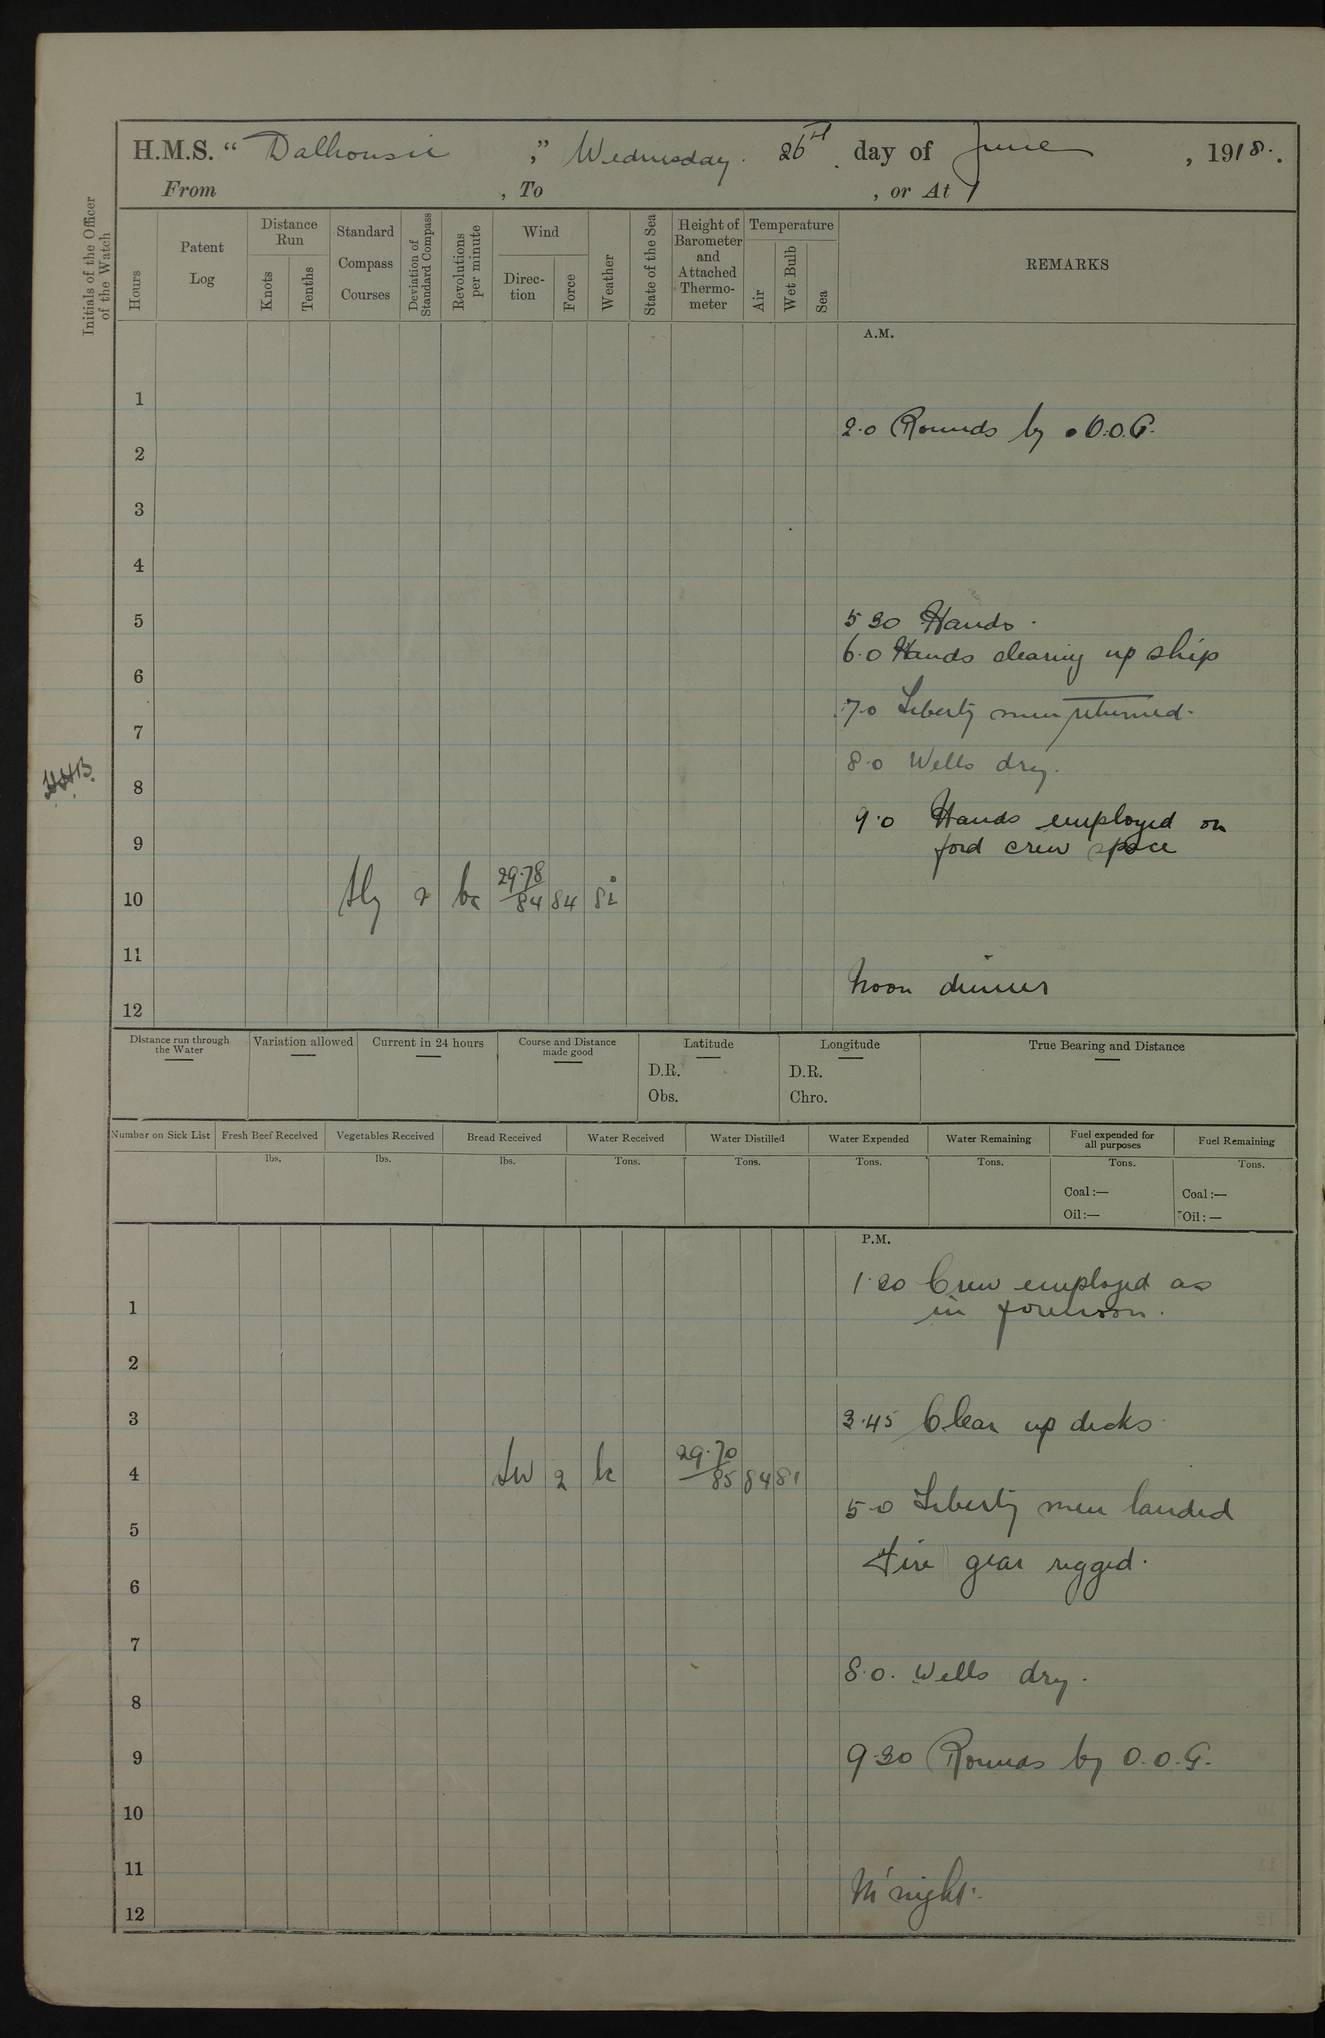 H.M.S. “ Dalhousie ,” Wednesday. 26th day of June , 1918.
From , To , or At
Initials of the Officer of the Watch
Hours
Patent Log
Distance Run
Knots
Tenths
Standard Compass Courses
Deviation of Standard Compass
Revolutions per minute
Wind
Direction
Force
Weather
State of the Sea
Height of Barometer and Attached Thermometer
Temperature
Air
Wet Bulb
Sea
REMARKS
A.M.
1
2.0 Rounds by O.O.G.
2
3
4
5
5 30 Hands.
6.0 Hands clearing up ship
6
7.0 Liberty men returned.
7
8.0 Wells dry.
HHB.
8
9.0 Hands employed on
ford crew space
9
10 Sly 2 bc 29.78/84 84 82
11
Noon dinner
12
Distance run through the Water
Variation allowed
Current in 24 hours
Course and Distance made good
Latitude
D.R.
Obs.
Longitude
D.R.
Chro.
True Bearing and Distance
Number on Sick List
Fresh Beef Received
lbs.
Vegetables Received
lbs.
Bread Received
lbs.
Water Received
Tons.
Water Distilled
Tons.
Water Expended
Tons.
Water Remaining
Tons.
Fuel expended for all purposes
Tons.
Coal :—
Oil :—
Fuel Remaining
Tons.
Coal :—
Oil : —
P.M.
1.30 Crew employed as
in forenoon.
1
2
3
3.45 Clear up decks.
4 SW 2 bc 29.70/85 84 81
5.0 Liberty men landed
5
Fire gear rigged.
6
7
8.0. Wells dry.
8
9
9.30 Rounds by O.O.G.
10
11
M'night.
12